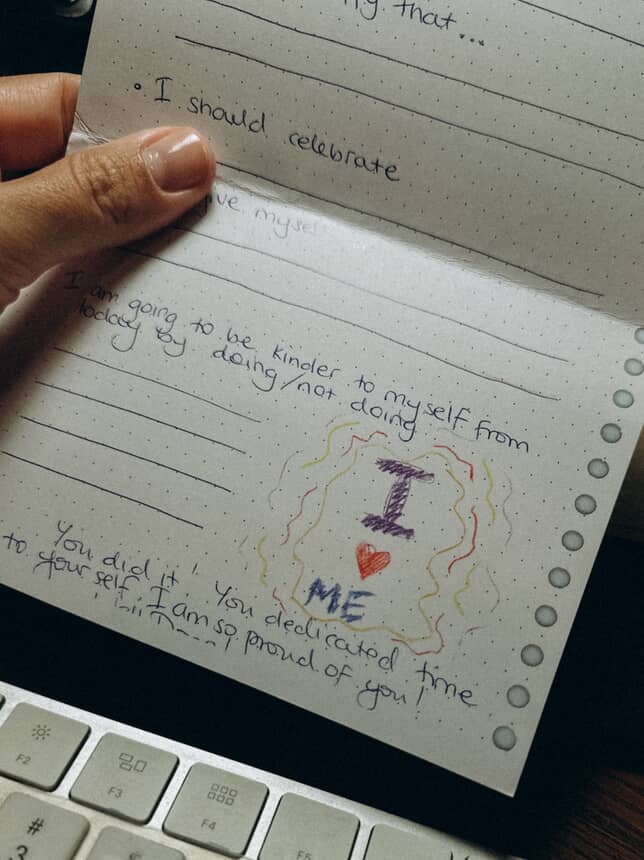 that...
• I should celebrate
I am going to be kinder to myself from
today by doing/not doing
I
ME
You did it! You dedicated time
to yourself. I am so proud of you!
F2
F3
F4
F5
#
3